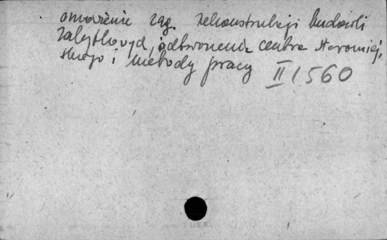 omówienie zag. rekonstrukcji budowli
zabytkowych, odtworzenie centra staromiej-
skiego i metody pracy II/560